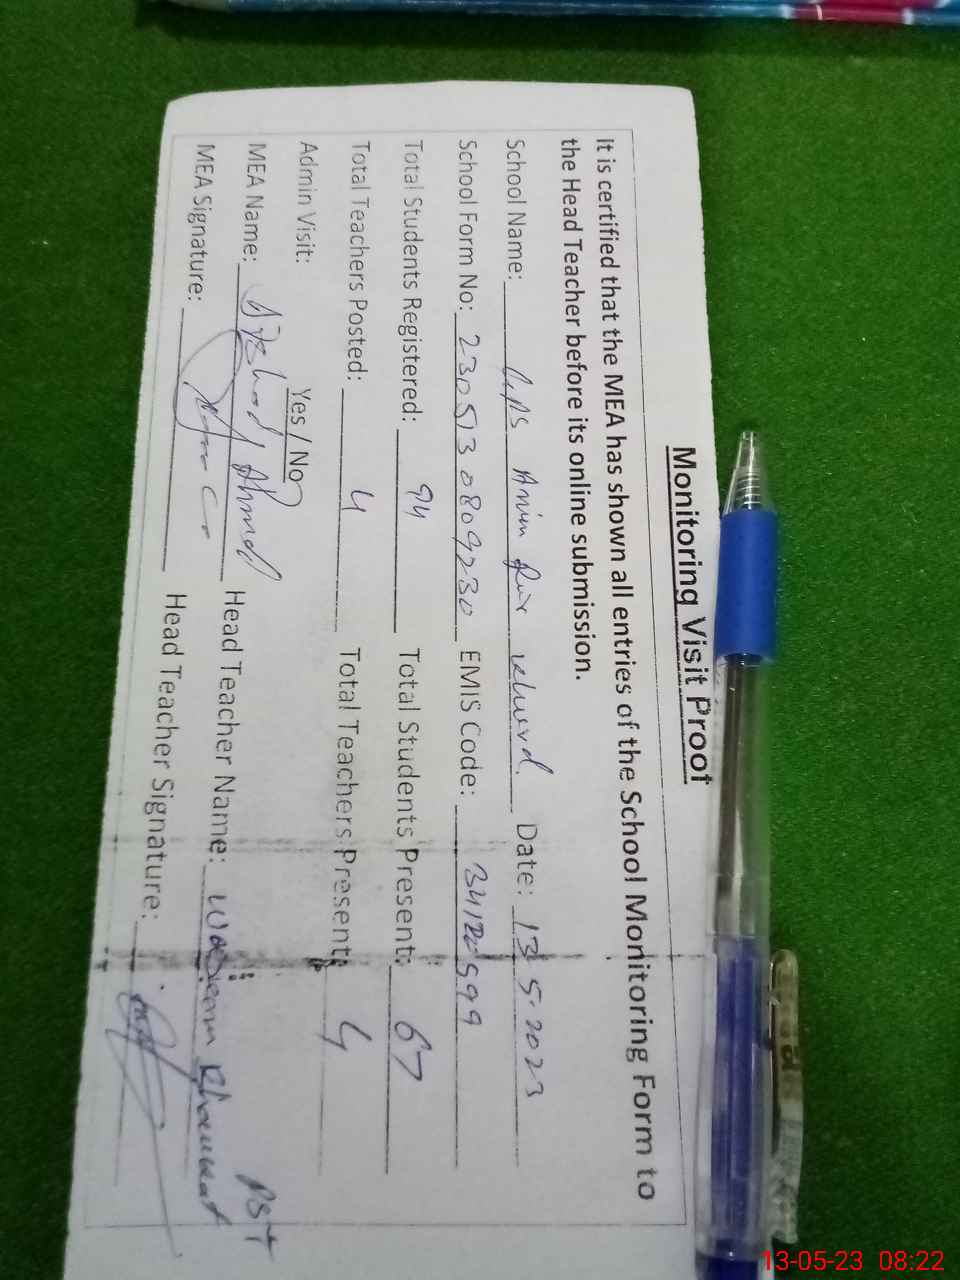 Monitoring Visit Proof
It is certified that the MEA has shown all entries of the School Monitoring Form to
the Head Teacher before its online submission.
School Name: GPS Date: 13 5-2023
School Form No: EMIS Code:
Total Students Registered: 94 Total Students Present: 67
Total Teachers Posted: 4 Total Teachers Present: 4
Admin Visit: Yes / No
MEA Name: Ahmad Head Teacher Name: Waseem PST
MEA Signature: Head Teacher Signature:
13-05-23 08:22